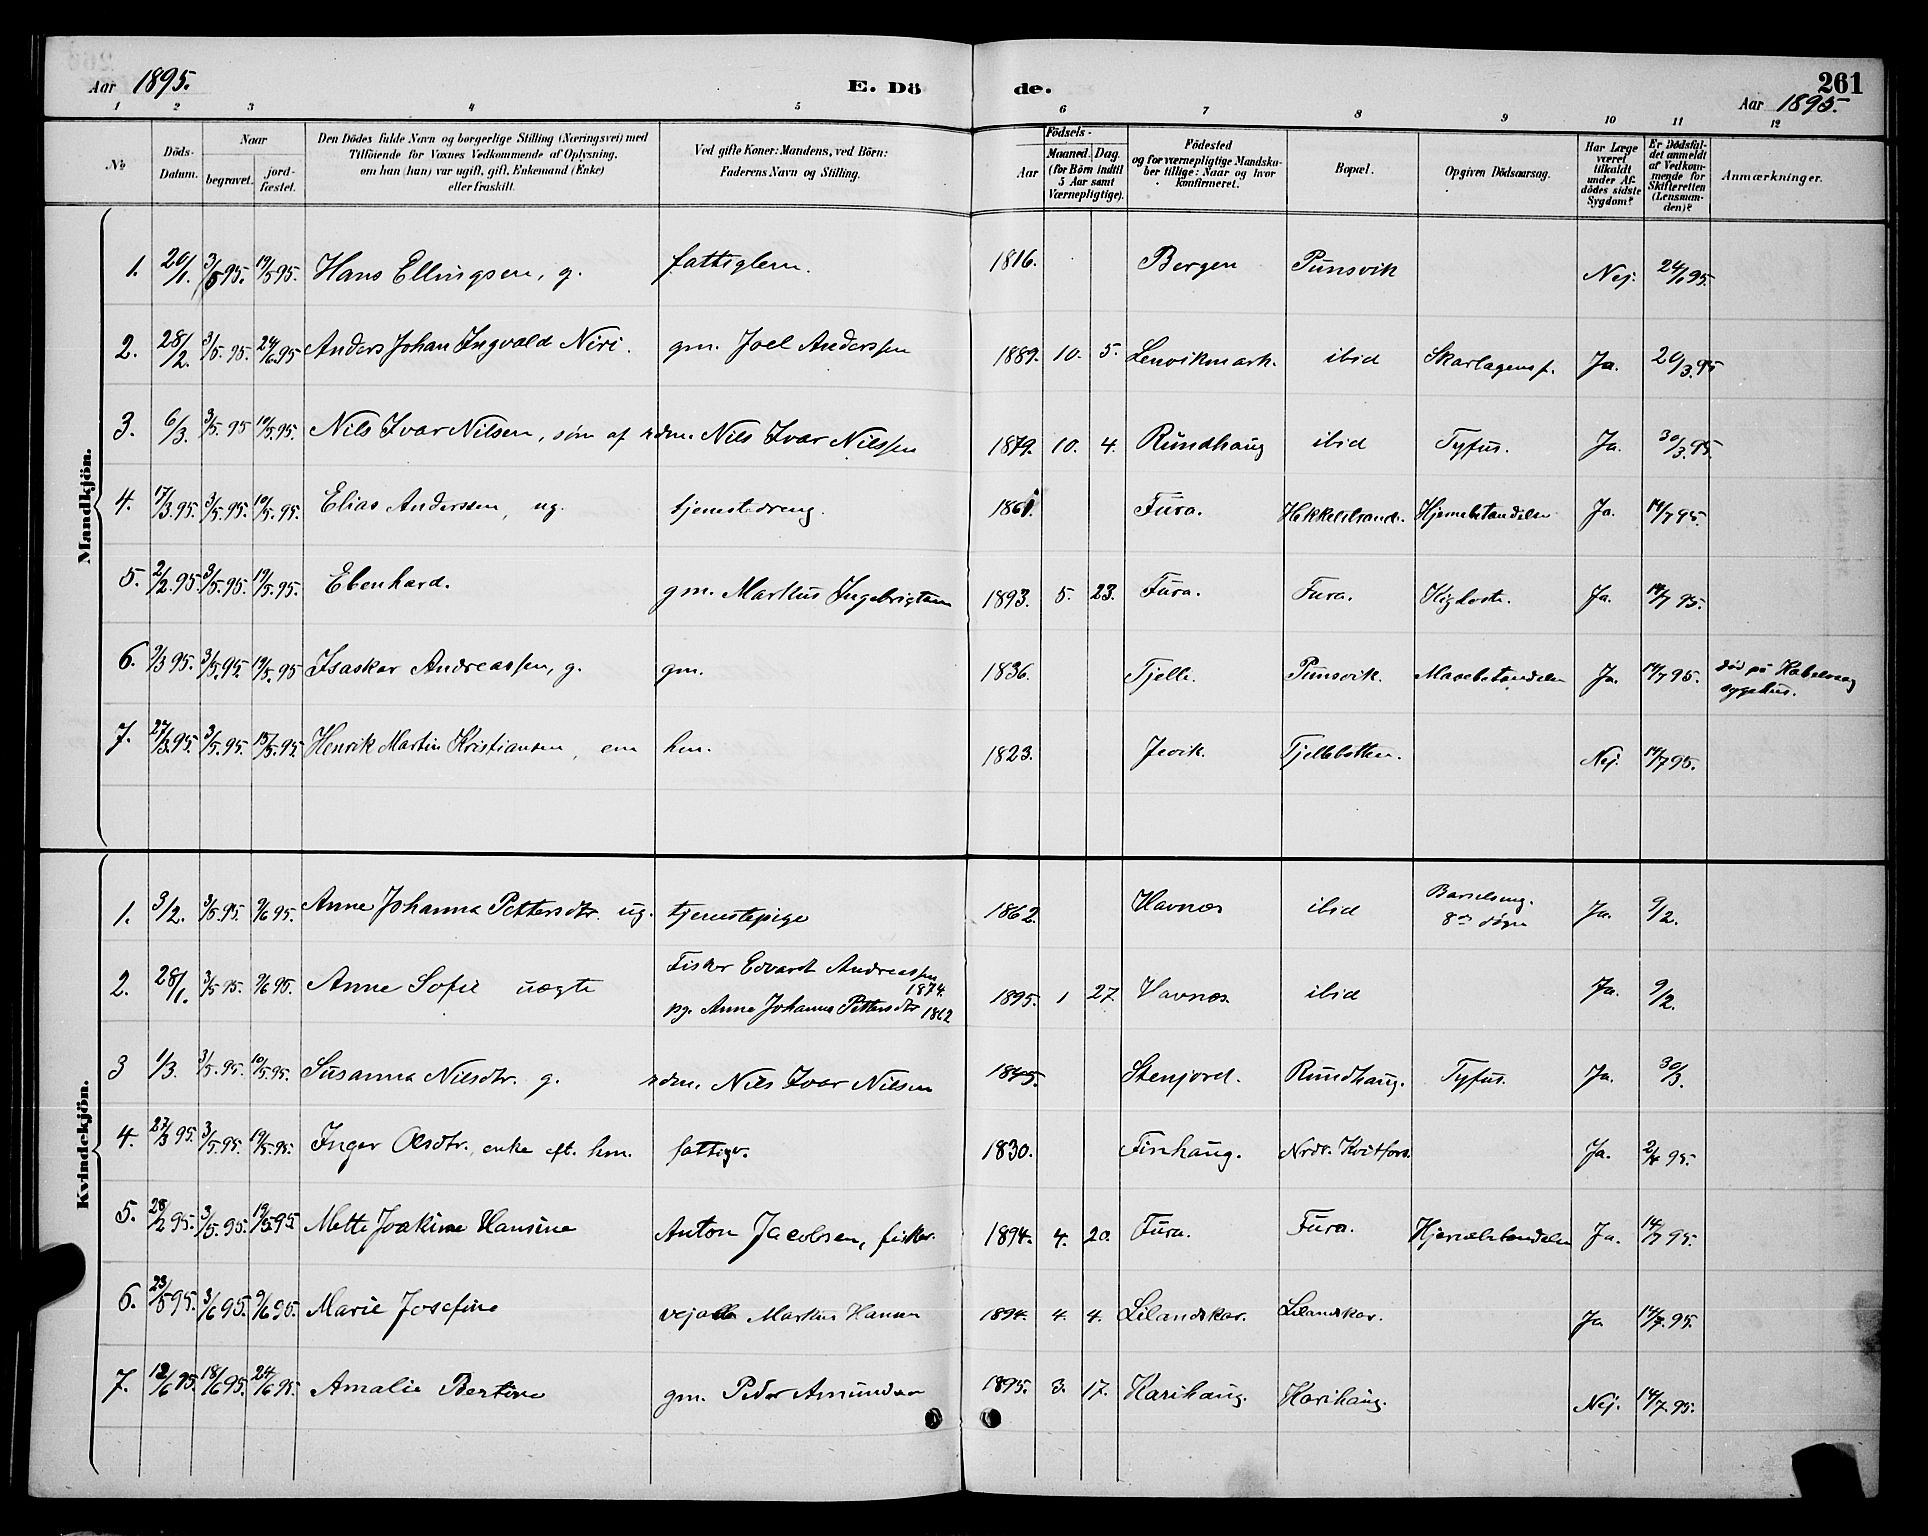 Aar 1895.
E. Dö de.
261
Aar 1895.
1 2 3 4 5 6 7 8 9 10 11 12
No
Döds-Datum.
Naar
begravet.
jord-fæstet.
Den Dödes fulde Navn og borgerlige Stilling (Næringsvei) med
Tilföiende for Voxnes Vedkommende af Oplysning,
om han (hun) var ugift, gift, Enkemand (Enke)
eller fraskilt.
Ved gifte Koner: Mandens, ved Börn:
Faderens Navn og Stilling.
Födsels-
Aar
Maaned.
Dag.
(for Börn indtil
5 Aar samt
Værnepligtige).
Födested
og for værnepligtige Mandska-
ber tillige: Naar og hvor
konfirmeret.
Bopæl.
Opgiven Dödsaarsag.
Har Læge
været
tilkaldt
under Af-
dödes sidste
Sygdom?
Er Dödsfal-
det anmeldt
af Vedkom-
mende for
Skifteretten
(Lensman-
den)?
Anmærkninger.
Mandkjön.
1. 20/1. 3/5 95. 19/5 95. Hans Ellingsen, g. fattiglem. 1816. Bergen Punsvik Nej. 24/6 95.
2. 28/2. 3/5. 95. 24/6 95 Anders Johan Ingvald Niri. gm. Joel Anderssen 1889. 10. 5. Lenvikmark. ibid Skarlagensf. Ja. 20/3. 95
3. 6/3. 3/5. 95 10/5. 95. Nils Ivar Nilsen, søn af rdm. Nils Ivar Nilssen 1879. 10. 4. Rundhaug ibid Tyfus. Ja. 30/3. 95.
4. 17/3. 95. 3/5. 95. 10/5. 95. Elias Anderssen, ug. tjenestedreng. 1861. Fura. Hekkelstrand. Hjernebetændelse Ja. 14/7 95.
5. 2/2. 95. 3/5. 95. 19/5. 95. Ebenhard. gm. Markus Ingebrigtsen 1893. 5. 23. Fura. Fura. Kighoste. Ja. 14/7 95.
6. 9/3 95. 3/5. 95. 19/5. 95 Isaskar Andreassen, g. gm. 1836. Tjelle. Punsvik. Mavebetændelse Ja. 14/7 95. død på Kabelvaag
sygehus.
7. 27/3. 95. 3/5. 95. 15/5. 95. Henrik Martin Kristiansen, em hm. 1823. Jevik. Tjellebotten. Nej. 14/7 95.
Kvindekjön.
1. 3/2. 3/5. 95. 9/6 95. Anne Johanna Pettersdtr. ug. tjenestepige 1862. Havnes ibid Barselseng.
8de døgn Ja. 9/2.
2. 28/1. 3/5 95. 9/6 95. Anne Sofie uægte Fisker Edvard Andreassen
1874.
pg. Anne Johanna Pettersdtr 1862 1895. 1 27. Havnes ibid Ja. 9/2.
3 1/3. 3/5. 95. 10/5. 95. Susanna Nilsdtr. g. rdm. Nils Ivar Nilsen 1845. Stenjord. Rundhaug. Tyfus. Ja. 30/3.
4. 27/3 95. 3/5. 95. 19/5. 95. Inger Olsdtr., enke eft. hm. fattigv. 1830. Finhaug. Nrdr. Kvitfors. Ja. 2/4 95.
5. 28/2 95. 3/5. 95. 19/5 95 Mette Joakime Hansine Anton Jacobsen, fisker. 1894. 4. 20. Fura. Fura. Hjernebetændelse Ja. 14/7 95.
6. 23/5 95. 3/6 95. 9/6 95. Marie Josefine Markus Hansen 1894. 4. 4. Lilandskar. Lilandskar. Ja 14/7. 95.
7. 12/6 95. 18/6 95. 24/6 95. Amalie Bertine gm. Peder Amundsen 1895. 3. 17. Karihaug. Karihaug. Nej. 14/7. 95.